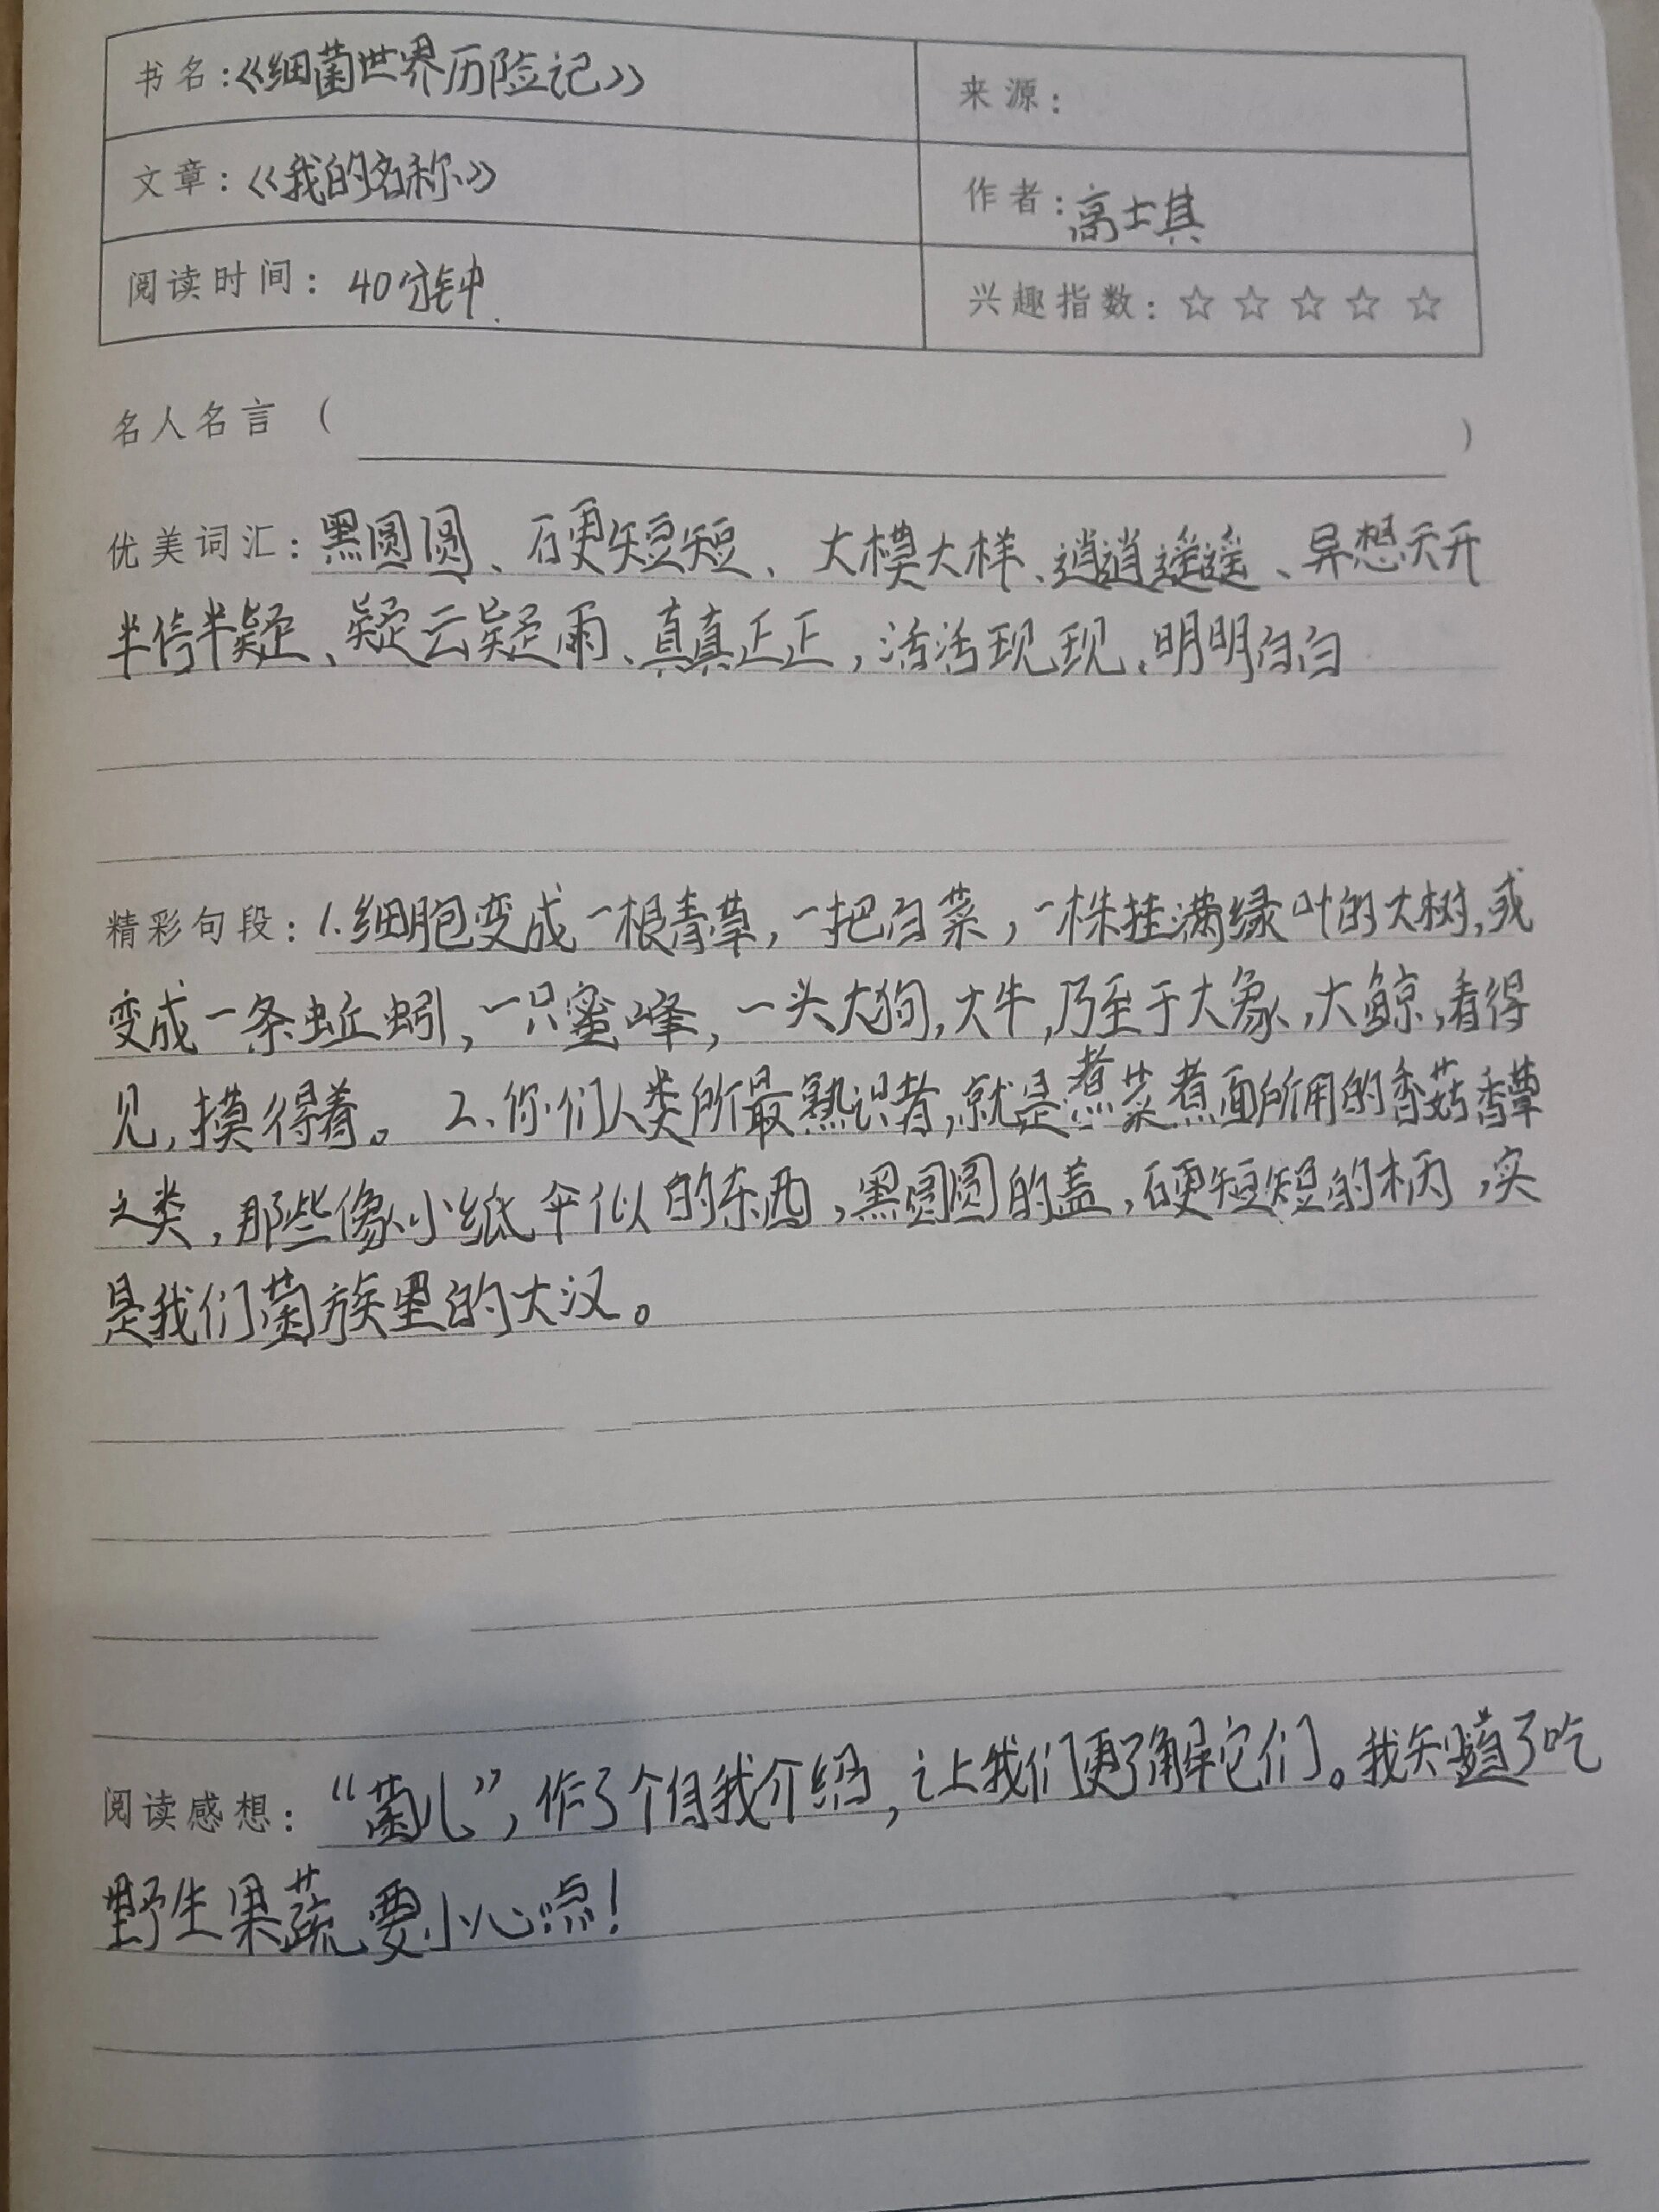 书名：《细菌世界历险记》 来源：
文章：《我的名称》 作者：高士其
阅读时间：40分钟. 兴趣指数：☆☆☆☆☆
名人名言（ ）
优美词汇：黑圆圆、硬短短、大模大样、逍逍遥遥、异想天开
半信半疑、疑云疑雨、真真正正，活活现现、明明白白
精彩句段：1.细胞变成一根青草，一把白菜，一株挂满绿叶的大树，或
变成一条蚯蚓，一只蜜峰，一头大狗，大牛，乃至于大象，大鲸，看得
见，摸得着。 2、你们人类所最熟识者，就是煮菜煮面所用的香菇香蕈
之类，那些像小纸伞似的东西，黑圆圆的盖，硬短短的柄，实
是我们菌族里的大汉。
阅读感想：“菌儿”，作了个自我介绍，让我们更了解它们。我知道了吃
野生果蔬要小心点！